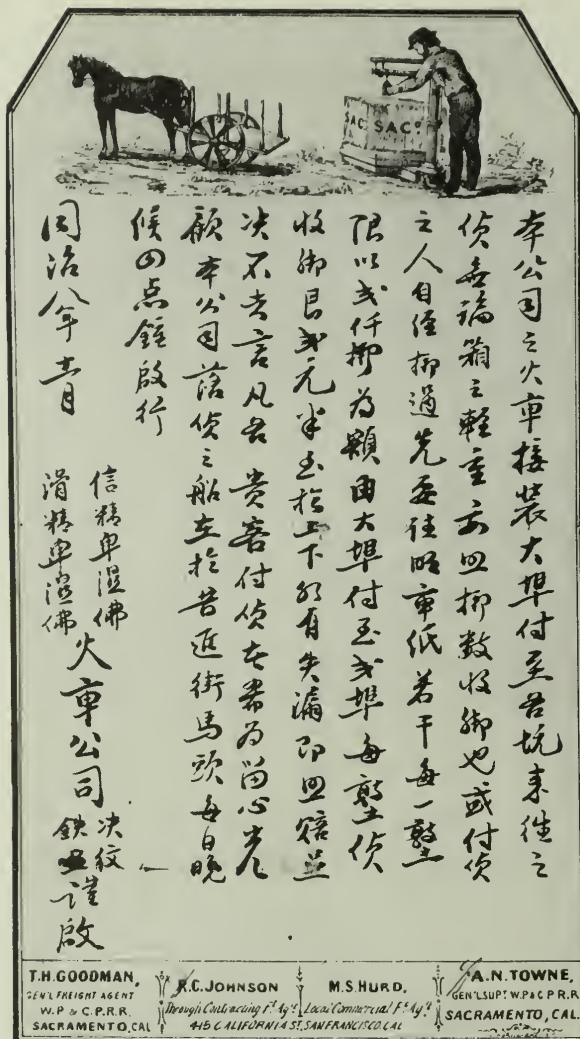 SAC. SACº
本公司之火車接裝大埠付至各坑來往之
貨無論箱之輕重亦照磅数收脚也或付貨
之人自經磅過先要往車紙若干每一墩
限以弍仟磅為額由大埠付至弍埠每墩貨
收脚艮弍元半至於上下如有失漏即照賠並
决不食言凡各 貴客付貨為留心光
顧本公司落貨之船在於街馬頭每日晚
候四点鐘啟行
同治八年十一月
信精卑湿佛
滑精卑湿佛
火車公司
决紋
鉄謹啟
T.H. GOODMAN,
GEN'L FREIGHT AGENT
W.P & C.P.R.R.
SACRAMENTO, CAL
R.C. JOHNSON
Through Contracting Ft Agt
M.S. HURD.
Local Commercial Ft Agt
415 CALIFORNIA ST, SAN FRANCISCO, CAL
A.N. TOWNE,
GEN'L SUPT W.P & C P.R.R.
SACRAMENTO, CAL.